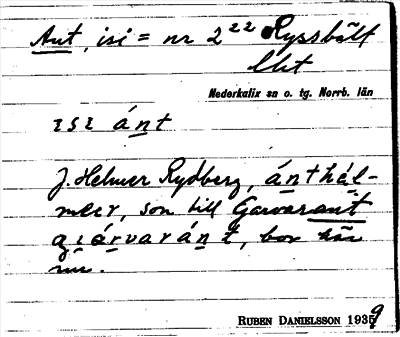 Ant, isi = nr 2²² Ryssbält
lht
Nederkalix sn o. tg. Norrb. län
ısı ánt
J. Helmer Rydberg, ánthál-
meır, son till Garvarant
gıárvaránt, bor här
nu.
RUBEN DANIELSSON 1939